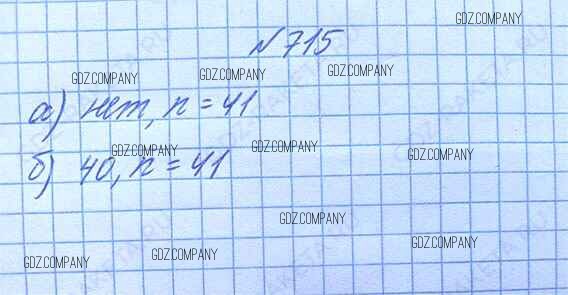 GDZ.COMPANY
№ 715
GDZ.COMPANY GDZ.COMPANY GDZ.COMPANY
а) нет, n = 41
GDZ.COMPANY GDZ.COMPANY GDZ.COMPANY
б) 40, n = 41
GDZ.COMPANY
GDZ.COMPANY GDZ.COMPANY GDZ.COMPANY